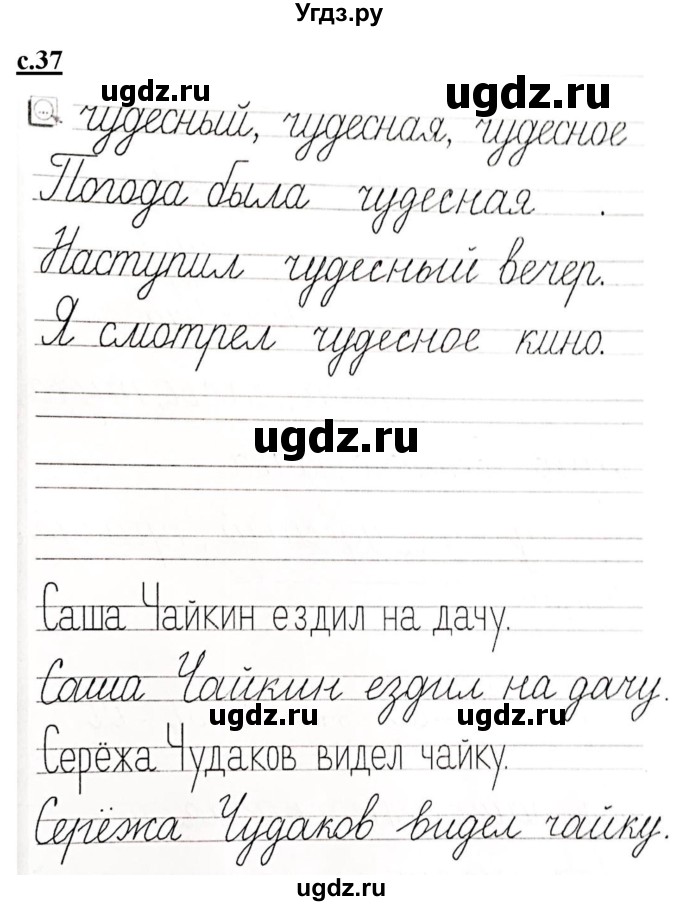 Угдз.ру
с.37
ugdz.ru ugdz.ru
чудесный, чудесная, чудесное
Погода была чудесная .
Наступил чудесный вечер.
Я смотрел чудесное кино.
ugdz.ru
Саша Чайкин ездил на дачу.
Саша Чайкин ездил на дачу.
ugdz.ru ugdz.ru
Серёжа Чудаков видел чайку.
Серёжа Чудаков видел чайку.
ugdz.ru